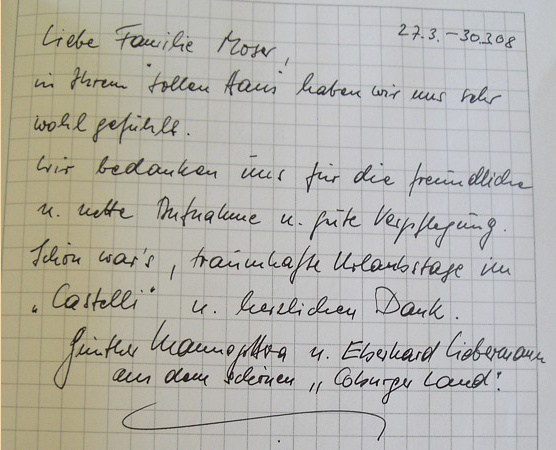 27.3. – 30.3.08
Liebe Familie Moser,
in Ihrem "tollen Haus" haben wir uns sehr
wohl gefühlt.
Wir bedanken uns für die freundliche
u. nette Aufnahme u. gute Verpflegung.
Schön war's, traumhafte Urlaubstage im
„Castelli" u. herzlichen Dank.
Günther u. Eberhard Liebermann
aus dem schönen „Coburger Land".